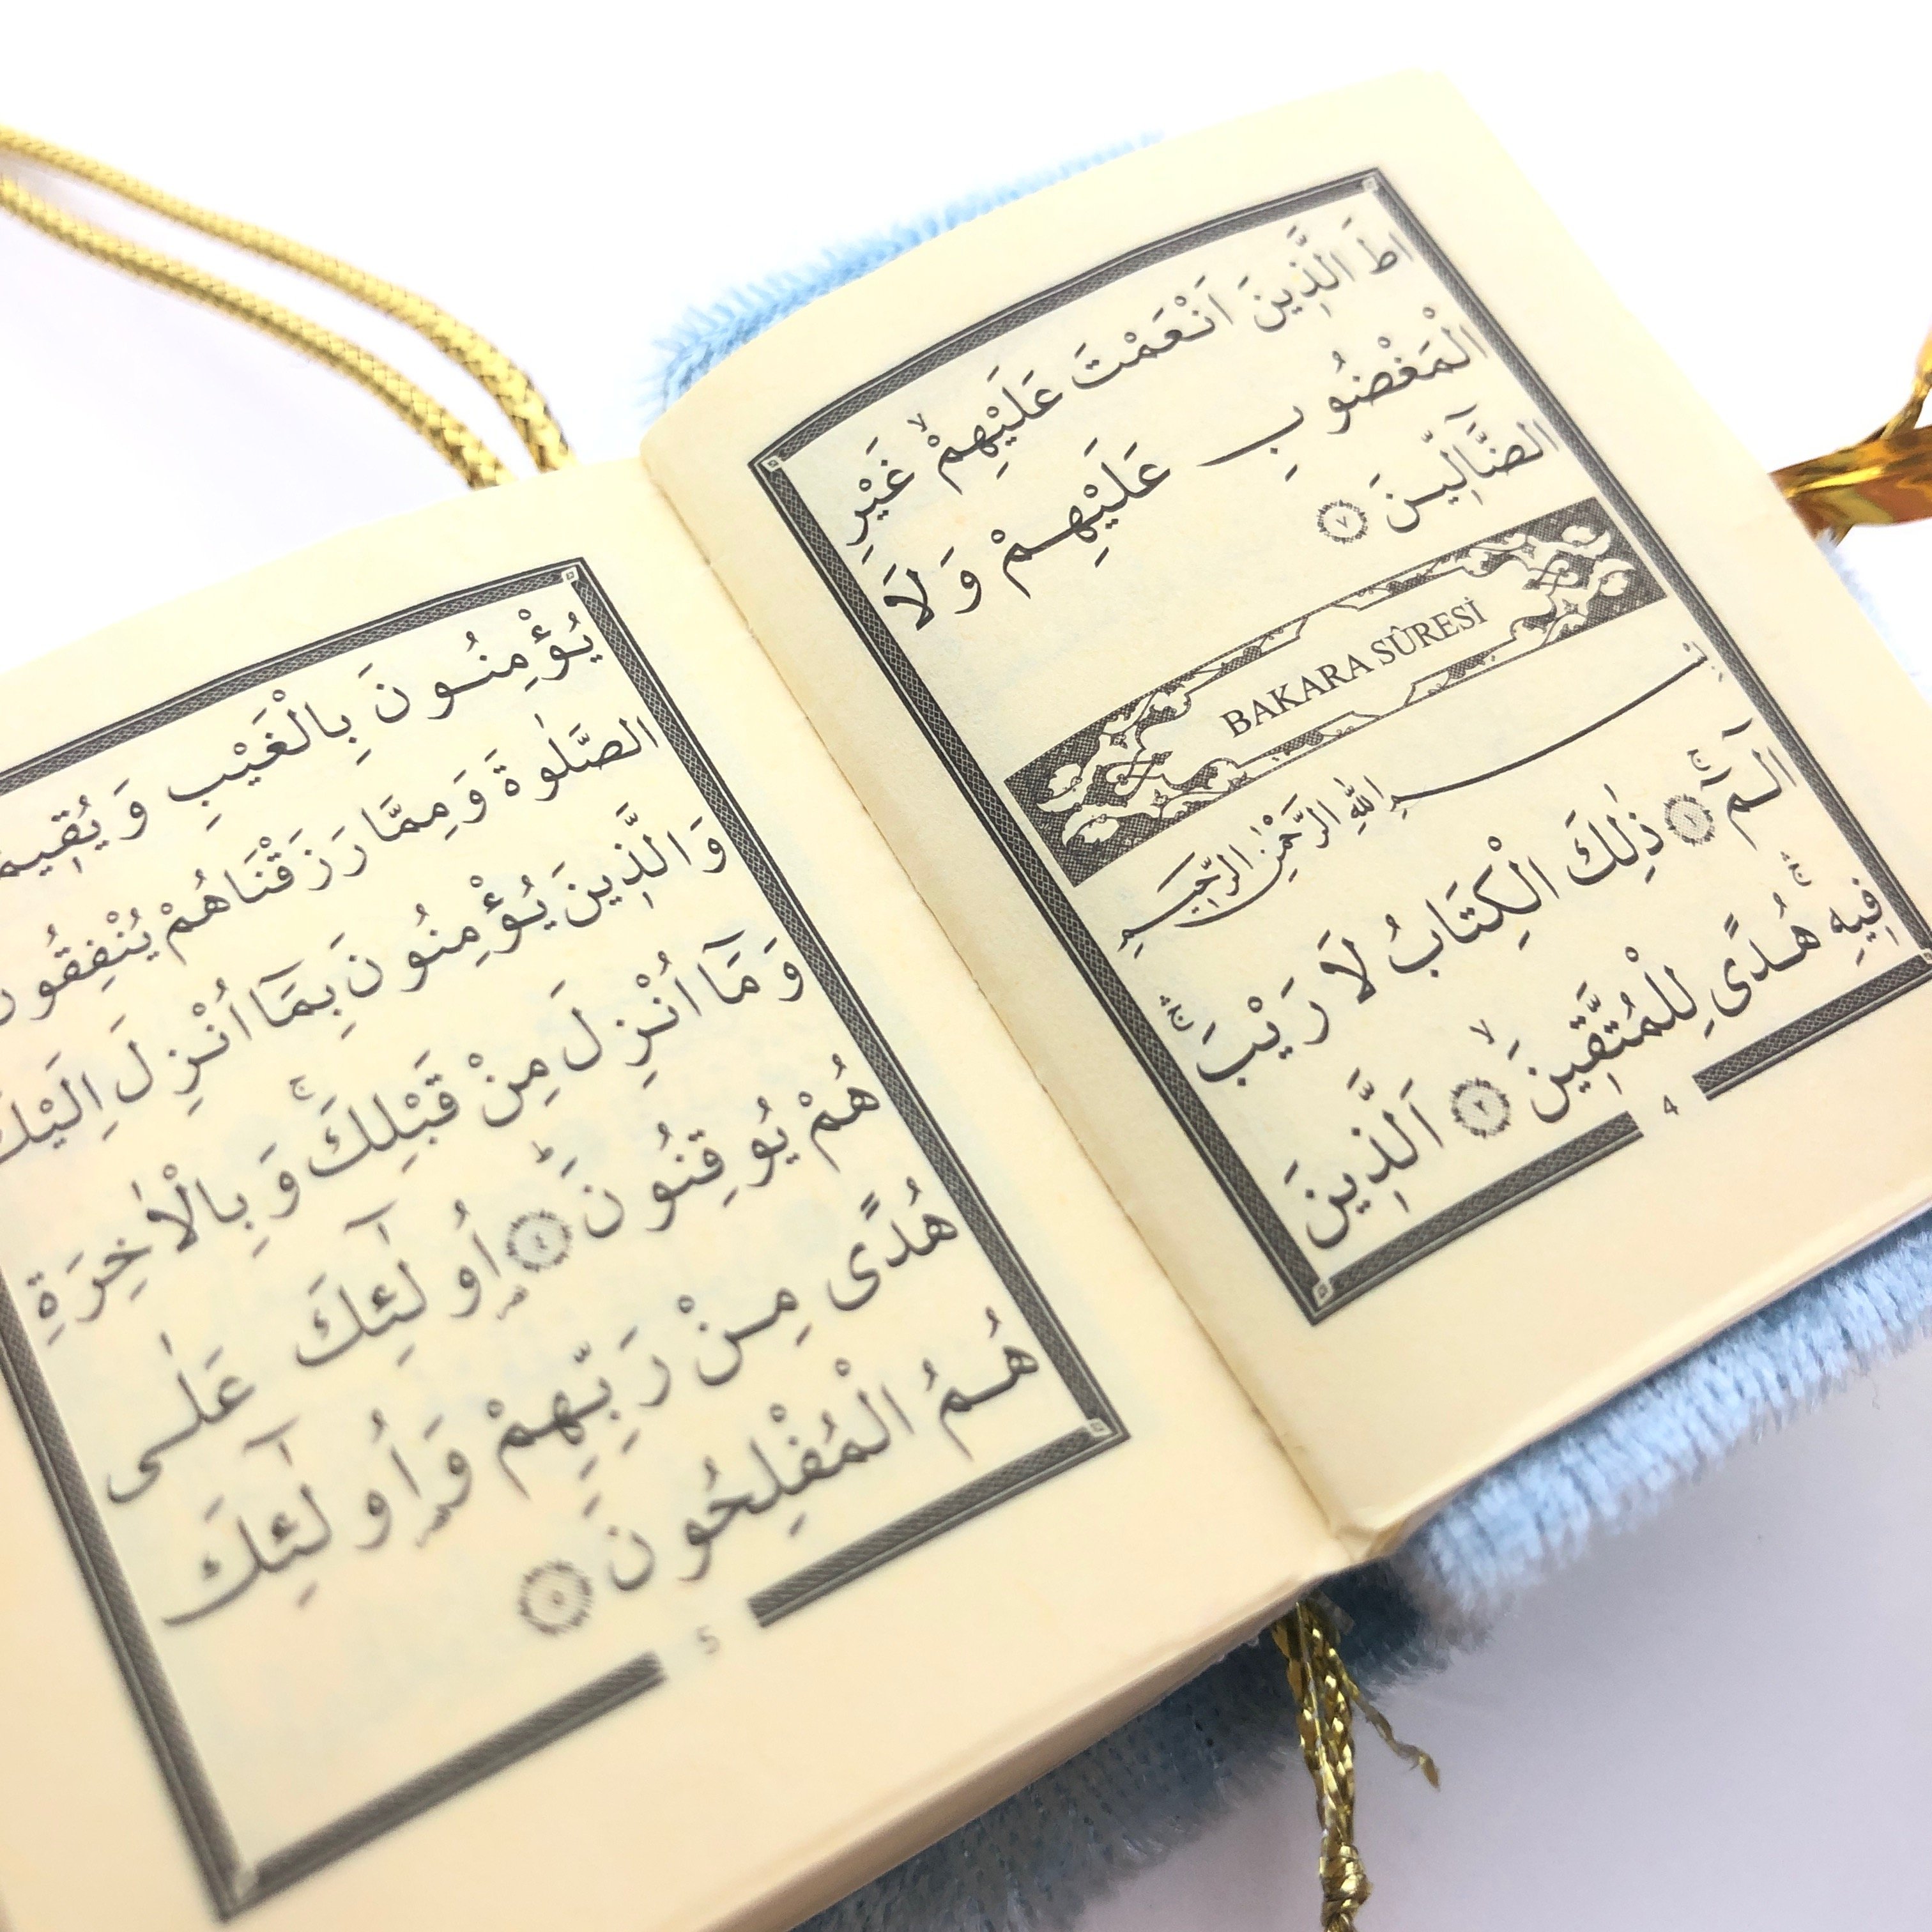 اطَ الَّذِينَ اَنْعَمْتَ عَلَيْهِمْۙ غَيْرِ
الْمَغْضُوبِ عَلَيْهِمْ وَلَا
الضَّٓالِّينَ ﴿٧﴾
BAKARA SÛRESİ
بِسْمِ اللهِ الرَّحْمٰنِ الرَّحِيمِ
الٓمٓۚ ﴿١﴾ ذٰلِكَ الْكِتَابُ لَا رَيْبَۚۛ
فِيهِۚۛ هُدًى لِلْمُتَّقِينَۙ ﴿٢﴾ اَلَّذِينَ
4
يُؤْمِنُونَ بِالْغَيْبِ وَ
الصَّلٰوةَ وَمِمَّا رَزَقْنَاهُمْ
وَالَّذِينَ يُؤْمِنُونَ بِمَٓا اُنْزِلَ اِلَيْكَ
وَمَٓا اُنْزِلَ مِنْ قَبْلِكَۚ وَبِالْاٰخِرَةِ
هُمْ يُوقِنُونَۜ ﴿٤﴾ اُو۬لٰٓئِكَ عَلٰى
هُدًى مِنْ رَبِّهِمْ وَاُو۬لٰٓئِكَ
هُمُ الْمُفْلِحُونَ ﴿٥﴾
5